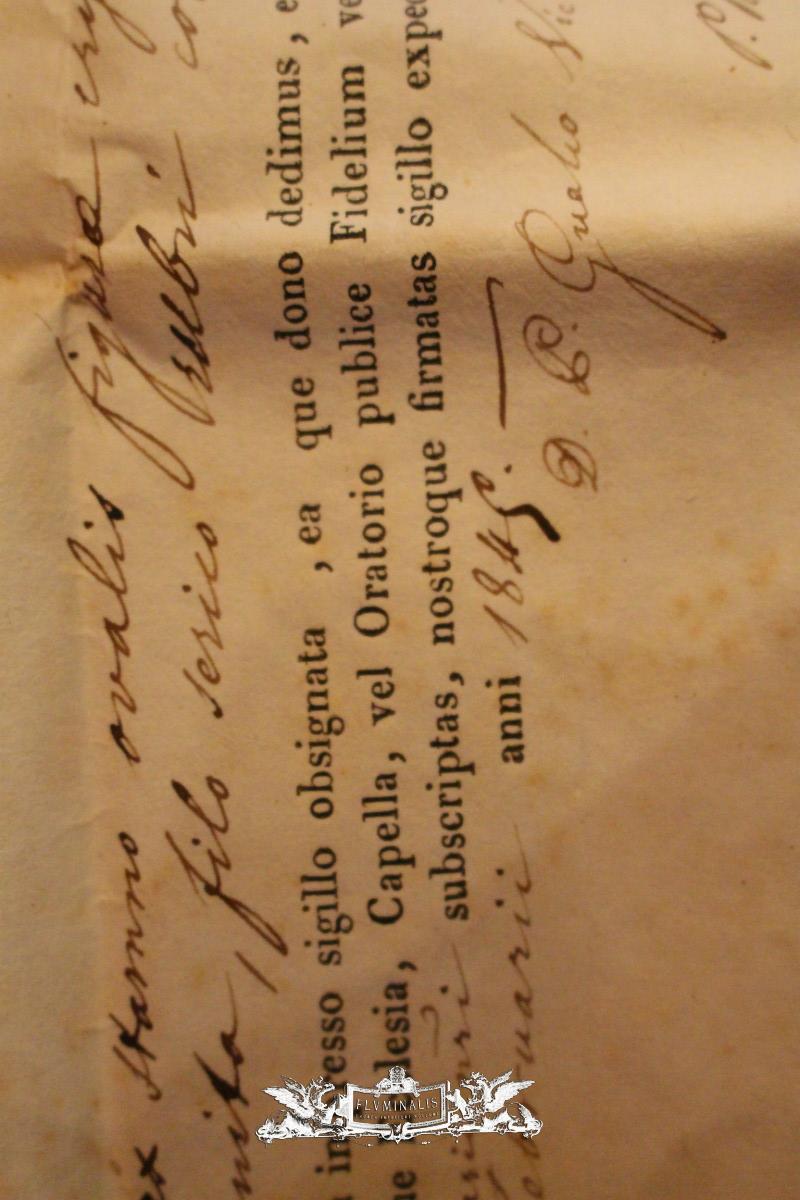 ex stanno ovalis figura
nita, filo serico rubri co
in impresso sigillo obsignata , ea que dono dedimus, e
Ecclesia, Capella, vel Oratorio publice Fidelium ve
subscriptas, nostroque firmatas sigillo exped
anni 1845.
D. P.
FLVMINALIS